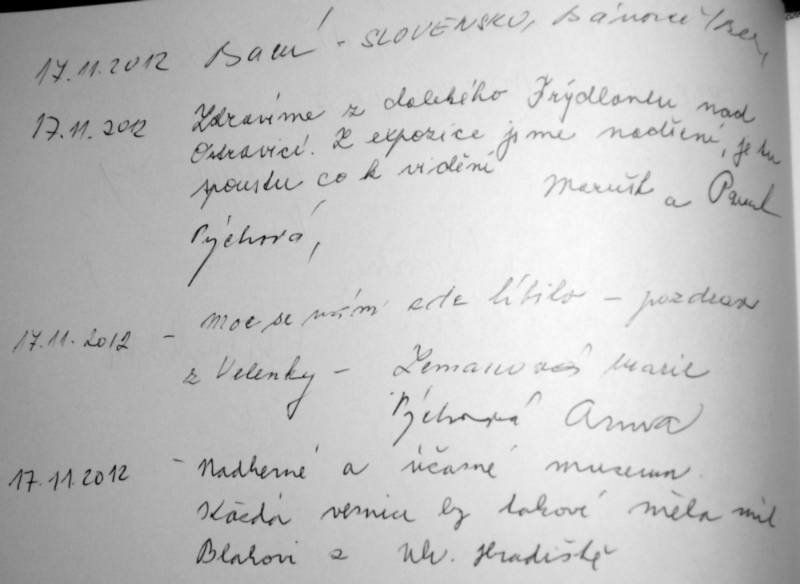 17.11.2012 - SLOVENSKO, Bánovce
17.11.2012 Zdravíme z dalekého Frýdlantu nad
Ostravicí. Z expozice jsme nadšení, je tu
spoustu co k vidění a Pavel
Pýchová,
17.11.2012 - moc se nám zde líbilo - pozdrav
z Velenky - Zemanová Marie
Pýchová Anna
17.11.2012 - Nadherné a účasné museum.
Každá vesnice by takové měla mít
Blahovi z Uh. Hradiště